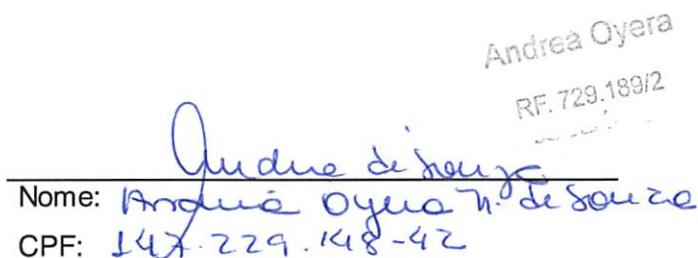 Andrea Oyera
RF. 729.189/2
Andrea de Souza
Nome: Andrea Oyera N. de Souza
CPF: 147.229.148-42